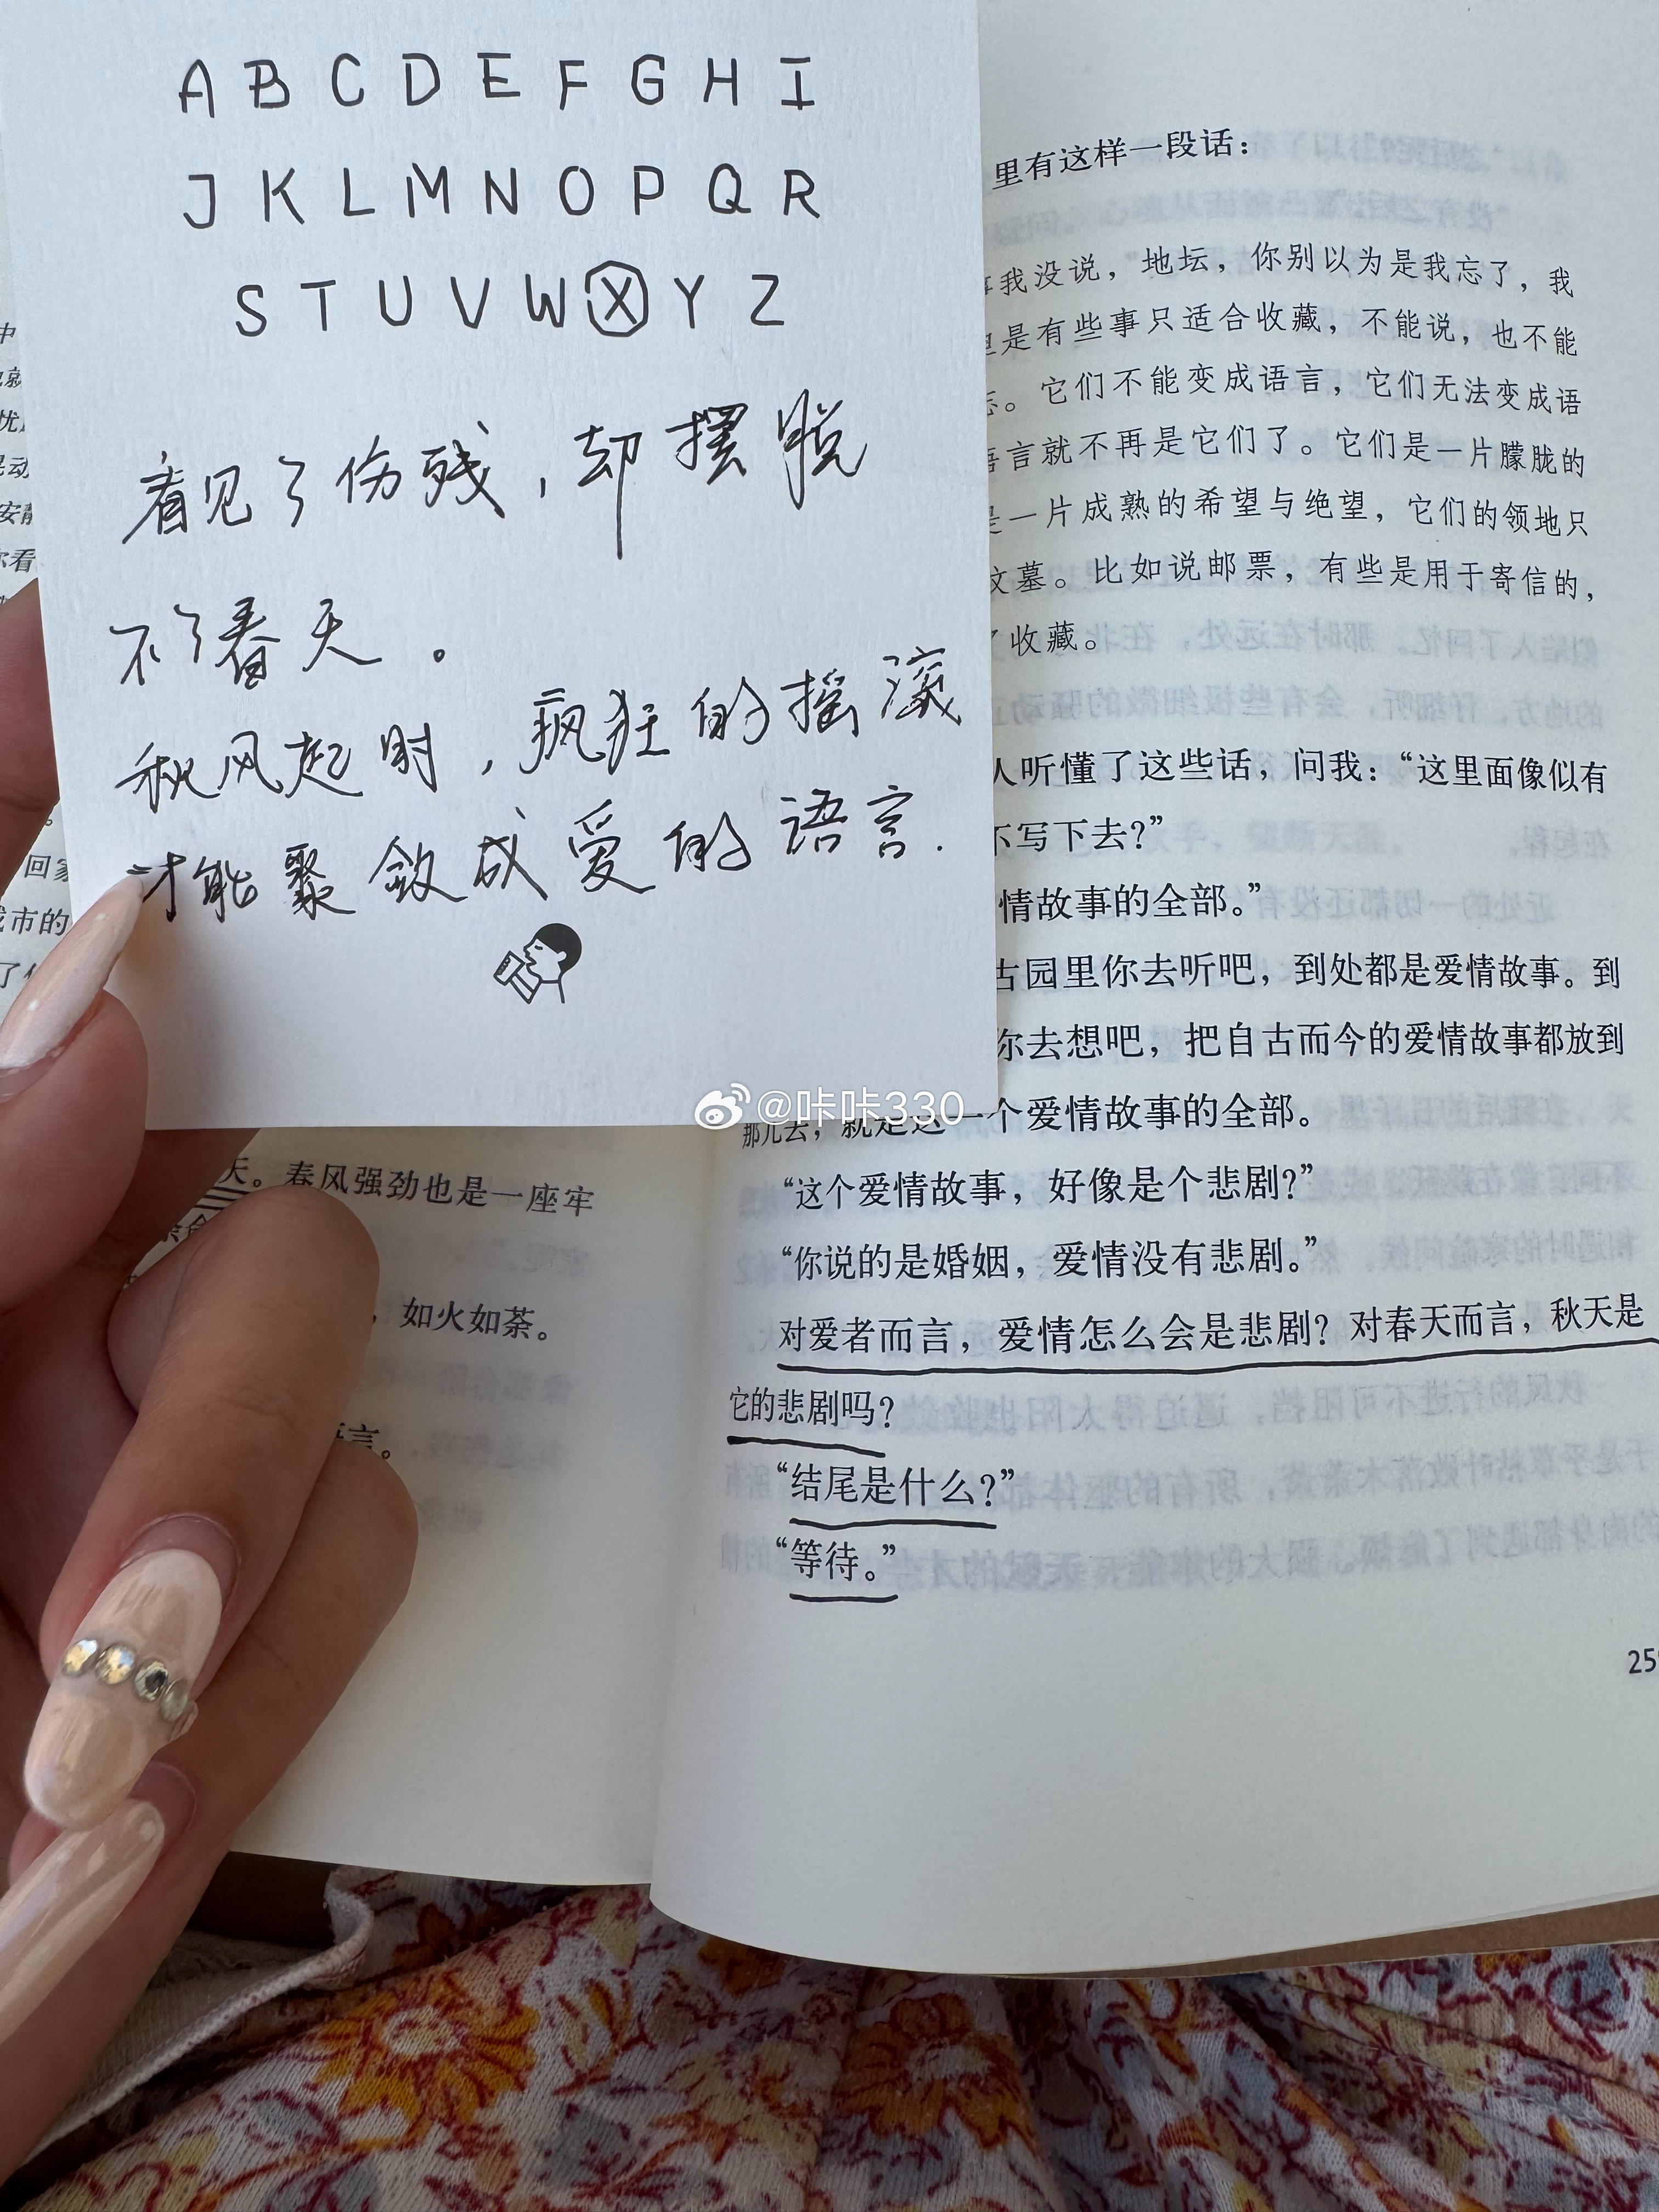 A B C D E F G H I
J K L M N O P Q R
S T U V W X Y Z
看见了伤残，却摆脱
不了春天。
秋风起时，疯狂的摇滚
才能聚敛成爱的语言.
@咔咔330
中
忧
动
安静
你看
回家
市的
天。春风强劲也是一座牢
，如火如荼。
言。
里有这样一段话：
我没说，地坛，你别以为是我忘了，我
是有些事只适合收藏，不能说，也不能
忘。它们不能变成语言，它们无法变成语
语言就不再是它们了。它们是一片朦胧的
是一片成熟的希望与绝望，它们的领地只
墓。比如说邮票，有些是用于寄信的，
了收藏。
人听懂了这些话，问我：“这里面像似有
不写下去？”
情故事的全部。”
古园里你去听吧，到处都是爱情故事。到
你去想吧，把自古而今的爱情故事都放到
那儿去，就是这一个爱情故事的全部。
“这个爱情故事，好像是个悲剧？”
“你说的是婚姻，爱情没有悲剧。”
对爱者而言，爱情怎么会是悲剧？对春天而言，秋天是
它的悲剧吗？
“结尾是什么？”
“等待。”